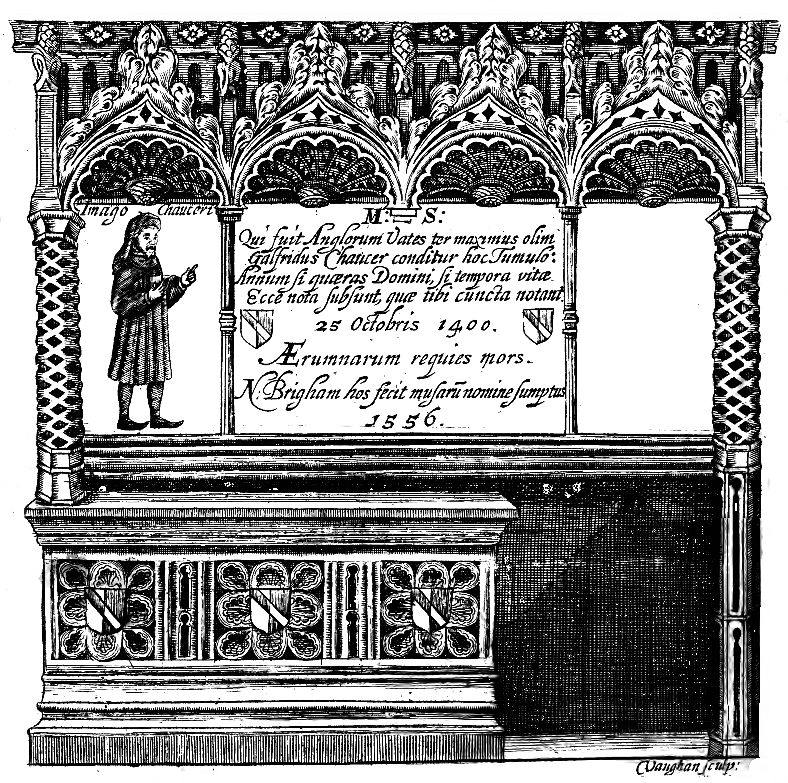 Imago Chauceri
M: S:
Qui fuit Anglorum Vates ter maximus olim
Galfridus Chaucer conditur hoc Tumulo:
Annum si quæras Domini, si tempora vitæ
Ecce nota subsunt, quæ tibi cuncta notant.
25 Octobris 1400.
Ærumnarum requies mors.
N. Brigham hos fecit musarū nomine sumptus
1556.
Vaughan sculp: